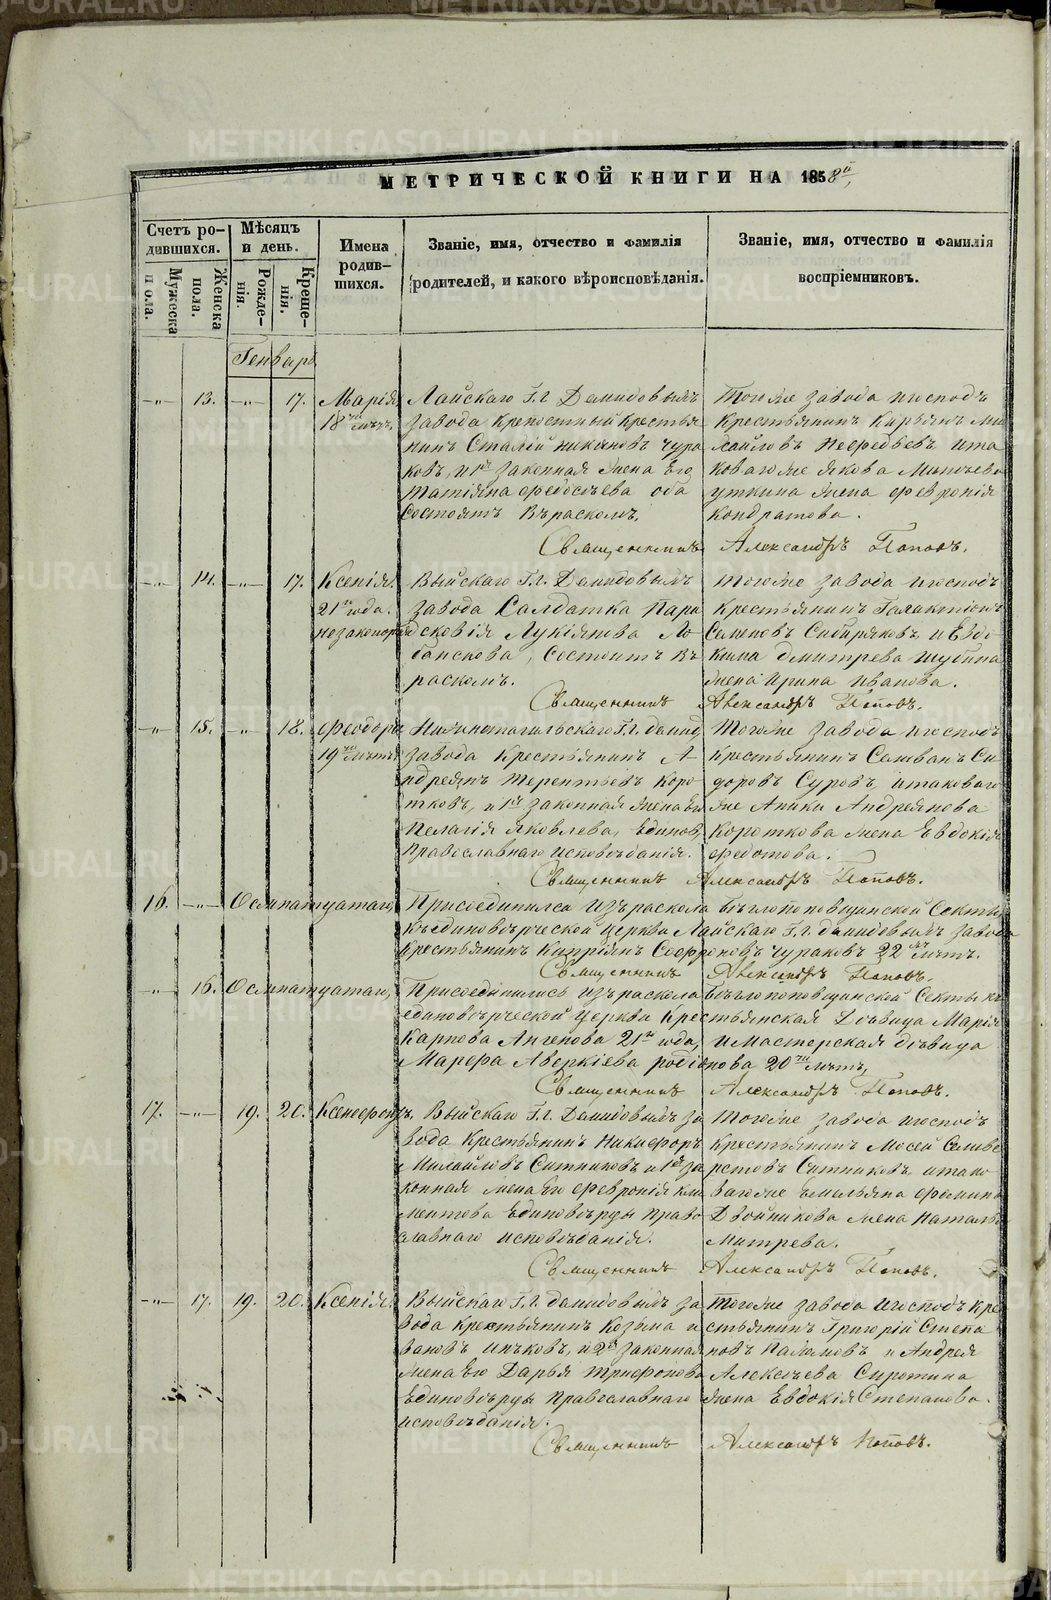 МЕТРИЧЕСКОЙ КНИГИ НА 1858й
Счетъ ро-
дившихся.
Мужеска
пола.
Женска
пола.
Мѣсяцъ
и день.
Рожде-
нія.
Креще-
нія.
Имена
родив-
шихся.
Званіе, имя, отчество и фамилія
родителей, и какого вѣроисповѣданія.
Званіе, имя, отчество и фамилія
воспріемниковъ.
Генварь
13. 17. Марія
18ти лѣтъ.
Лайскаго Г.г. Демидовыхъ
завода крепостный крестья
нинъ
Никоновъ Чура
ковъ, и 1я законная жена Его
Татіяна Федосѣева оба
состоятъ въ расколѣ.
Тогоже завода игосподъ
Крестьянинъ Кирьянъ Ми
хайловъ Нефедьевъ, ита
коваго же Якова
Уткина жена Февронія
Кондратова.
Священникъ Александръ Поповъ.
14. 17. Ксенія.
21го года.
незаконорж
Выйскаго Г.г. Демидовыхъ
завода Салдатка Пара
сковія Лукіянова Ло
банскова, Состоитъ въ
расколѣ.
Тогоже завода игосподъ
Крестьянинъ Галактіонъ
Семеновъ Сибиряковъ, и Евдо
кима Дмитрева Шубина
жена Ирина Иванова.
Священникъ Александръ Поповъ.
15. 18. Феодора
19ти лѣтъ
Нижнетагильскаго Г.г. Демид
завода Крестьянинъ А-
ндреянъ Терентьевъ Коро-
тковъ, и 1я законная жена Его
Пелагія Яковлева, Единов.
Православнаго исповѣданія.
Тогоже завода игосподъ
Крестьянинъ Селиванъ Си
доровъ Суровъ, итаковаго
же Аники Андреянова
Короткова жена Евдокія
Федотова.
Священникъ Александръ Поповъ.
16. Осмнатцатаго, Присоединился изъ раскола бѣглопоповщинской Секты
къ единовѣрческой церкви Лайскаго Г.г. Демидовыхъ завода
крестьянинъ Кипріянъ Софроновъ Чураковъ 22 лѣтъ.
Священникъ Александръ Поповъ.
16. Осмнатцатаго, Присоединились изъ раскола бѣглопоповщинской Секты къ
единовѣрческой церкви Крестьянская Дѣвица Марія
Карпова 21го года, и Мастерская дѣвица
Марфа Аверкіева Родіонова 20ти лѣтъ,
Священникъ Александръ Поповъ.
17. 19. 20. Ксенофонтъ,
Выйскаго Г.г. Демидовыхъ за
вода Крестьянинъ Никифоръ
Михайловъ Ситниковъ и 1я за
конная жена Его Февронія Кли
ментова Единовѣрцы Право
славнаго исповѣданія.
Тогоже завода игосподъ
Крестьянинъ Мосей Селиве
рстовъ Ситниковъ итако
вагоже Емельяна Фомина
Двойникова жена Наталья
Митрева.
Священникъ Александръ Поповъ.
17. 19. 20. Ксенія.
Выйскаго Г.г. Демидовыхъ за
вода Крестьянинъ Козьма И
вановъ и 2я законная
жена Его Дарья Трифонова
Единовѣрцы Православнаго
исповѣданія.
Тогоже завода игосподъ Кре
стьянинъ Григорій Степа
новъ и Андрея
Алексѣева Сиротина
жена Евдокія Степанова.
Священникъ Александръ Поповъ.
METRIKI.GASO-URAL.RU